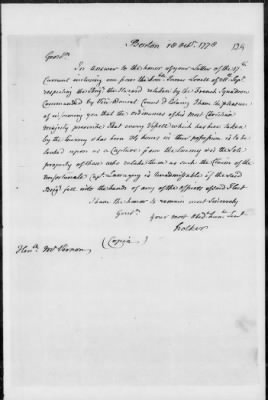 Boston 18 Octr. 1778
134
Gentn.
In answer to the honor of your Letter of the 17th
Current inclosing one from the Honble James Lovell of 28th Sepr.
respecting the Brigt the Hazard retaken by the French Squadron
Commanded by Vice Admiral Count d'Estaing I have the pleasure
of informing you that the ordinances of his Most Christian
Majesty prescribe That every Vessell which has been taken
by the Enemy & has been 24 hours in their possession is to be
looked upon as a Capture from the Enemy & is the Sole
property of those who retake them as such the Claim of the
unfortunate Capt. is inadmissable if the said
Brigt fell into the hands of any of the Officers of said Fleet
I have the honor to remain most sincerely
Gentn.
Your most Obedt. hum Servt.
Holker
(Copia)
Honble Mr Vernon